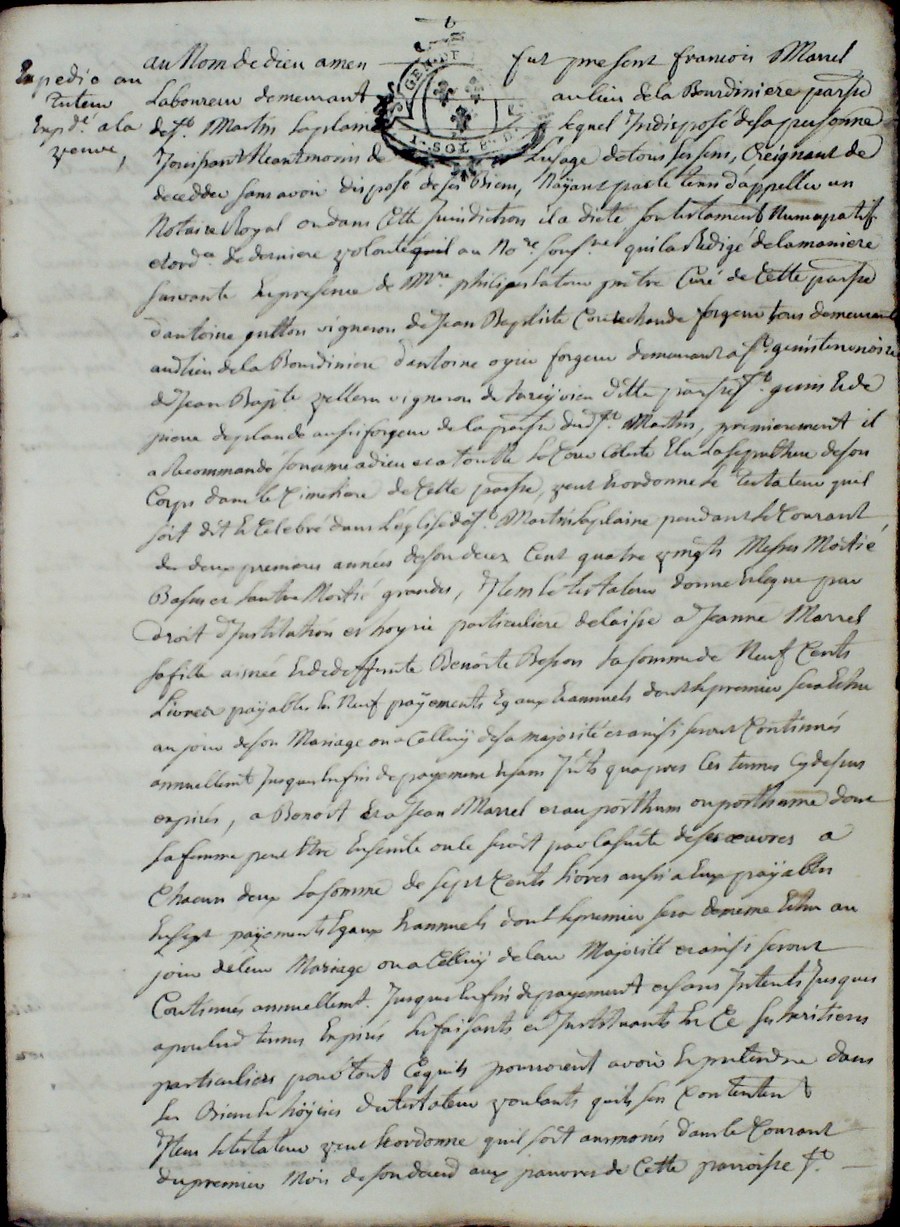 Expedié au
tuteur
Exp.de a la
veuve,
au Nom de dieu amen fut present francois Marrel
GEN. DE
SOL
Laboureur demeurant au lieu de la Bourdiniere parsse
de st. Martin Laplaine lequel Indisposé desa personne
Jouissant Neantmoins de Lusage detous ses sens, Creignant de
deceder sans avoir disposé de ses Biens, Nayant pas le tems d'appeller un
Notaire Royal ou dans Cette Jurisdiction il a dicté son testament Nuncupatif
et ord.re de derniere volonté au No.re sous.né qui la Redigé de la maniere
suivante En presence de M.re philipe prêtre Curé de Cette parsse
d'antoine guttou vigneron de Jean Baptiste forgeur tous demeurants
audit lieu de la Bourdiniere d'antoine forgeur demeurant a st. genis terrenoire
de Jean Bapte vigneron de dite parsse st. genis Et de
pierre aussi forgeur de la parsse dud st. Martin, premierement il
a Recommandé son ame a dieu et a toutte La Cour Celeste Elu La sepulture de son
Corps dans le Cimetiere de Cette parsse, veut Et ordonne le testateur quil
soit dit Et Celebré dans L'église de st. Martin Laplaine pendant le Courant
des deux premieres années de son deces Cent quatre vingts Messes Moitié
Basses et Lautre Moitié grandes, Item le testateur donne Et legue par
droit d'Institution et hoyrie particuliere delaisse a Jeanne Marrel
sa fille ainée Et de deffunte Benoite Besson La somme de Neuf Cents
Livres payables En Neuf payements Egaux Et annuels dont le premier sera Echu
au jour de son Mariage ou a Celluy de sa majorité et ainsi seront Continués
annuellemt Jusques Enfin de payement Et sans Ints quapres Les termes Cy dessus
expirés, a Benoit Et a Jean Marrel et au posthum ou posthume dont
sa femme peut Etre Enceinte ou le seroit par la suite de ses oeuvres a
Chacun deux La somme de sept Cents livres aussi a Eux payables
En sept payements Egaux Et annuels dont le premier sera de meme Echu au
jour de leur Mariage ou a Celluy de leur Majorité et ainsi seront
Continués annuellemt. Jusques Enfin de payement et sans Interets Jusques
apres lesd termes Expirés Les faisants et Instituants En Ce ses heritiers
particuliers pour tout Ce quils pourroient avoir Et pretendre dans
les Biens Et hoyries du testateur voulants quils sen Contentent
Item le testateur veut Et ordonne quil soit aumoné dans le Courant
du premier Mois de son deces aux pauvres de Cette parroisse st.